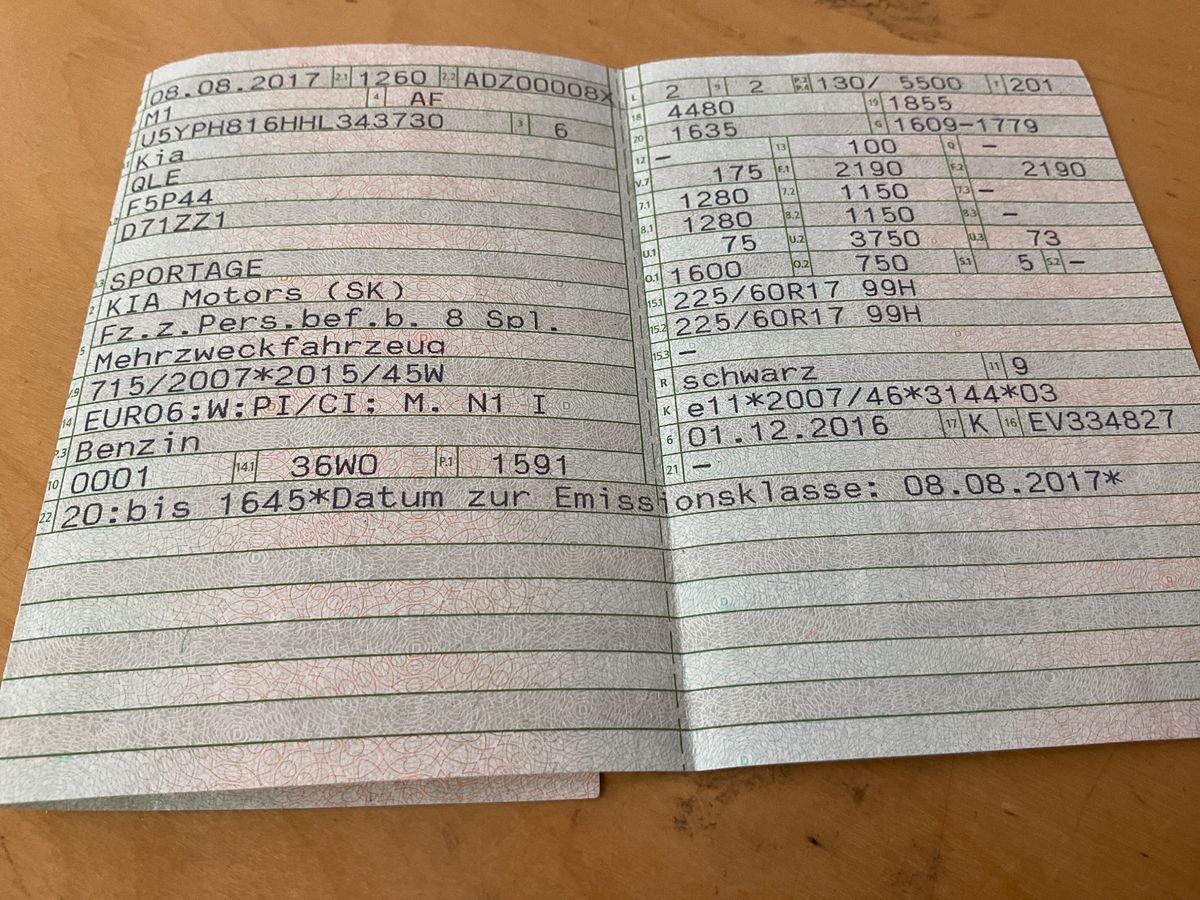 08.08.2017 2.1 1260 2.2 ADZ00008X
M1 4 AF
U5YPH816HHL343730 3 6
Kia
QLE
F5P44
D71ZZ1
SPORTAGE
2 KIA Motors (SK)
Fz.z.Pers.bef.b. 8 Spl.
5 Mehrzweckfahrzeug
V.9 715/2007*2015/45W
14 EURO6;W;PI/CI; M, N1 I
P.3 Benzin
10 0001 14.1 36W0 P.1 1591
L 2 9 2 P.2 P.4 130/ 5500 T 201
18 4480 19 1855
20 1635 G 1609-1779
12 – 13 100 Q –
V.7 175 F.1 2190 F.2 2190
7.1 1280 7.2 1150 7.3 –
8.1 1280 8.2 1150 8.3 –
U.1 75 U.2 3750 U.3 73
O.1 1600 O.2 750 S.1 5 S.2 –
15.1 225/60R17 99H
15.2 225/60R17 99H
15.3 –
R schwarz 11 9
K e11*2007/46*3144*03
6 01.12.2016 17 K 16 EV334827
21 –
22 20:bis 1645*Datum zur Emissionsklasse: 08.08.2017*